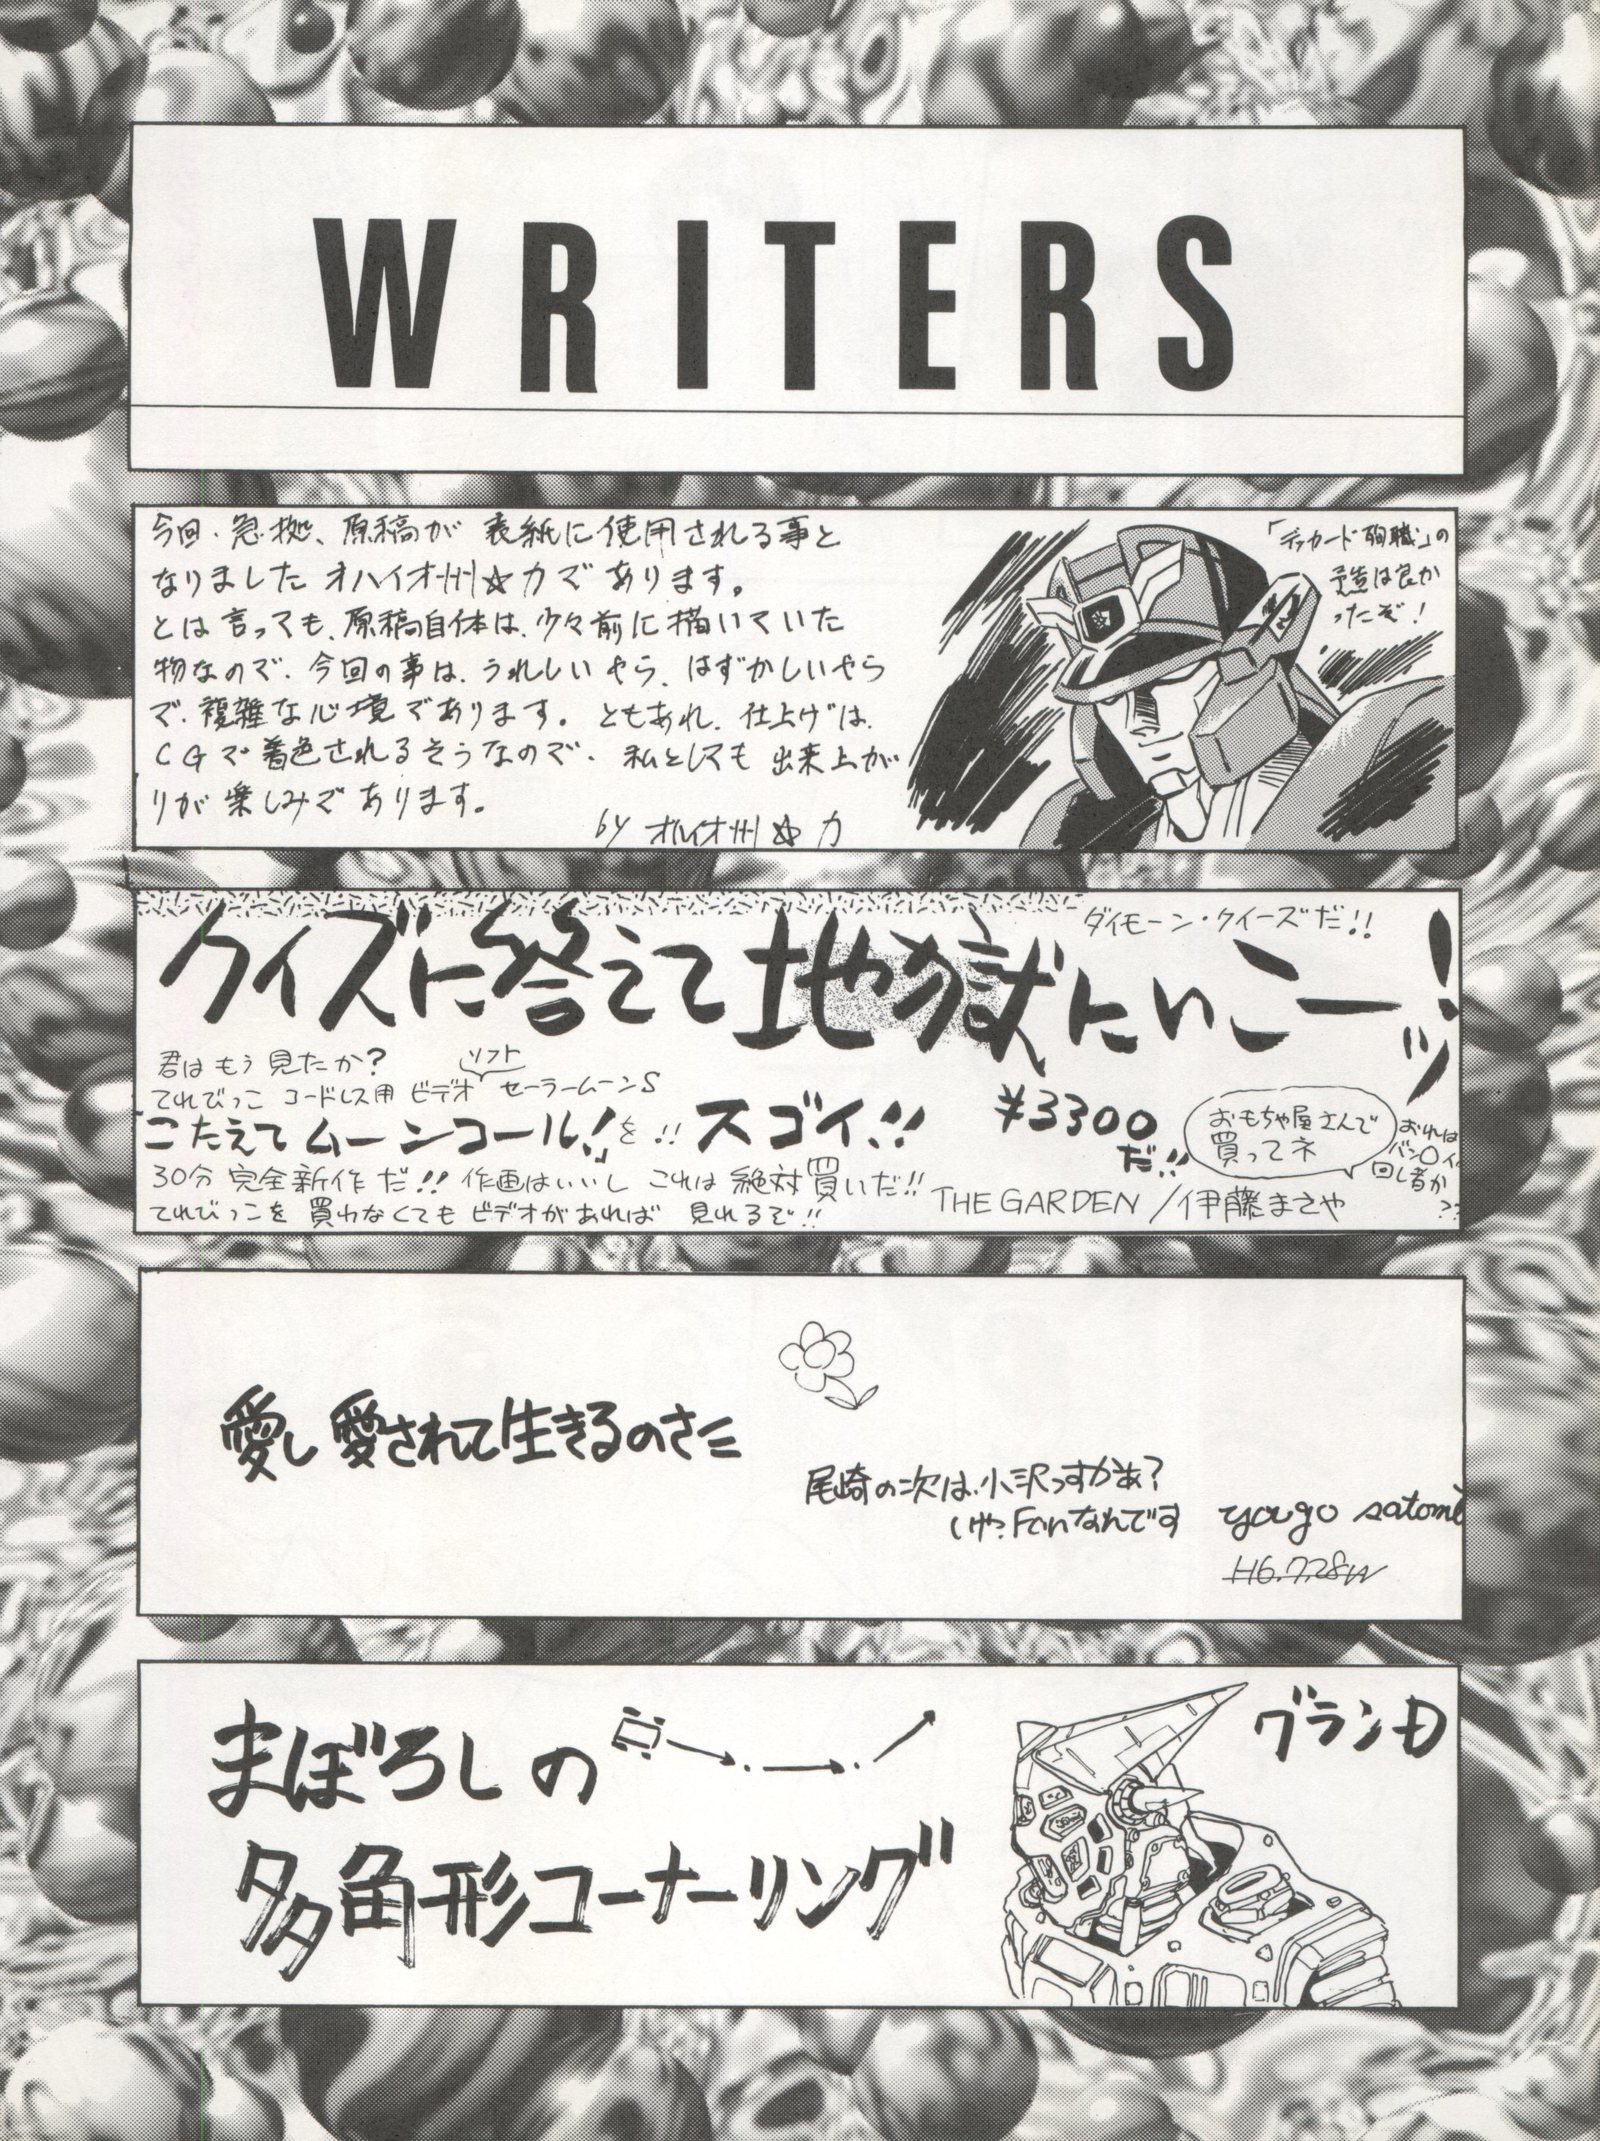 WRITERS
今回、急拠、原稿が表紙に使用される事と
なりましたオハイオ州☆力であります。
とは言っても、原稿自体は、少々前に描いていた
物なので、今回の事は、うれしいやら、はずかしいやら
で、複雑な心境であります。ともあれ、仕上げは、
CGで着色されるそうなので、私としても出来上が
りが楽しみであります。
by オハイオ州☆力
「デッカード殉職」の
予告は良か
ったぞ!
ダイモーン・クイーズだ!!
クイズに答えて地獄にいこーッ!
君はもう見たか?
てれびっこ コードレス用 ビデオソフト セーラームーンS
こたえてムーンコール!を!! スゴイ!!
¥3300
だ!!
おもちゃ屋さんで
買ってネ
おれは
バン〇イの
回し者か
??
30分完全新作だ!! 作画はいいし これは絶対買いだ!!
てれびっこを買わなくてもビデオがあれば 見れるぞ!!
THE GARDEN/伊藤まさや
愛し愛されて生きるのさ
尾崎の次は、小沢っすかぁ?
いや?Fanなんです
yougo satomi
H6.7.28W
まぼろしの
多角形コーナーリング
グラン